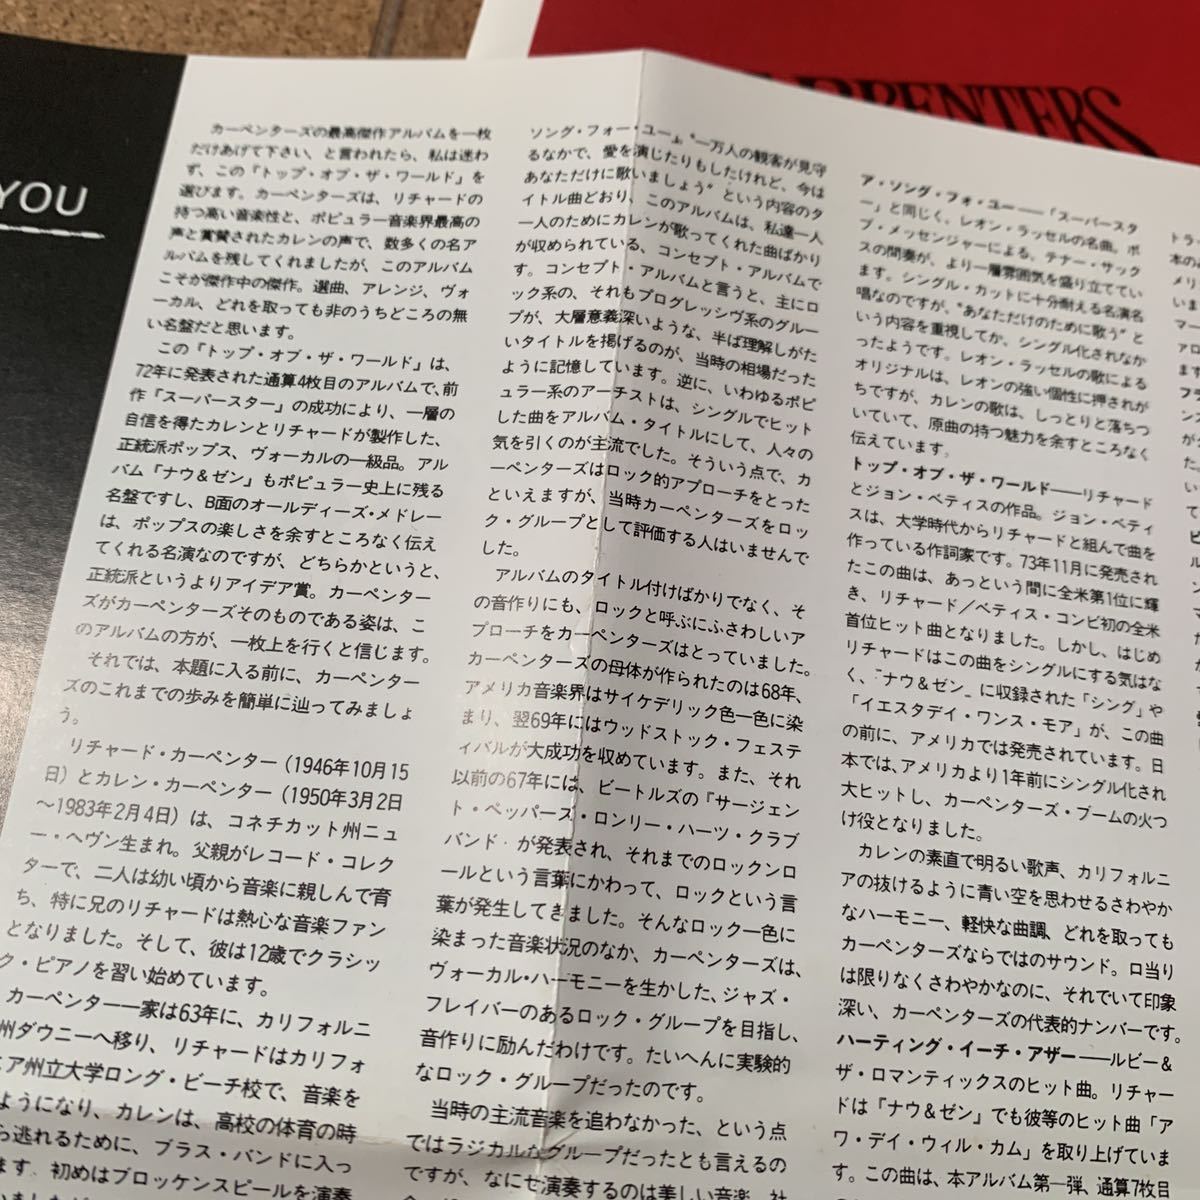 YOU
CARPENTERS
カーペンターズの最高傑作アルバムを一枚
だけあげて下さい、と言われたら、私は迷わ
ず、この『トップ・オブ・ザ・ワールド』を
選びます。カーペンターズは、リチャードの
持つ高い音楽性と、ポピュラー音楽界最高の
声と賞賛されたカレンの声で、数多くの名ア
ルバムを残してくれましたが、このアルバム
こそが傑作中の傑作。選曲、アレンジ、ヴォ
ーカル、どれを取っても非のうちどころの無
い名盤だと思います。
この『トップ・オブ・ザ・ワールド』は、
72年に発表された通算4枚目のアルバムで、前
作『スーパースター』の成功により、一層の
自信を得たカレンとリチャードが製作した、
正統派ポップス、ヴォーカルの一級品。アル
バム『ナウ＆ゼン』もポピュラー史上に残る
名盤ですし、B面のオールディーズ・メドレー
は、ポップスの楽しさを余すところなく伝え
てくれる名演なのですが、どちらかというと、
正統派というよりアイデア賞。カーペンター
ズがカーペンターズそのものである姿は、こ
のアルバムの方が、一枚上を行くと信じます。
それでは、本題に入る前に、カーペンター
ズのこれまでの歩みを簡単に辿ってみましょ
う。
リチャード・カーペンター（1946年10月15
日）とカレン・カーペンター（1950年3月2日
～1983年2月4日）は、コネチカット州ニュ
ー・ヘヴン生まれ。父親がレコード・コレク
ターで、二人は幼い頃から音楽に親しんで育
ち、特に兄のリチャードは熱心な音楽ファン
となりました。そして、彼は12歳でクラシッ
ク・ピアノを習い始めています。
カーペンター一家は63年に、カリフォルニ
州ダウニーへ移り、リチャードはカリフォ
ニア州立大学ロング・ビーチ校で、音楽を
ようになり、カレンは、高校の体育の時
ら逃れるために、ブラス・バンドに入っ
ます。初めはブロッケンスピールを演奏
いましたが
ソング・フォー・ユー』。“一万人の観客が見守
るなかで、愛を演じたりもしたけれど、今は
あなただけに歌いましょう”という内容のタ
イトル曲どおり、このアルバムは、私達一人
一人のためにカレンが歌ってくれた曲ばかり
が収められている、コンセプト・アルバムで
す。コンセプト・アルバムと言うと、主にロ
ック系の、それもプログレッシヴ系のグルー
プが、大層意義深いような、半ば理解しがた
いタイトルを掲げるのが、当時の相場だった
ように記憶しています。逆に、いわゆるポピ
ュラー系のアーチストは、シングルでヒット
した曲をアルバム・タイトルにして、人々の
気を引くのが主流でした。そういう点で、カ
ーペンターズはロック的アプローチをとった
といえますが、当時カーペンターズをロッ
ク・グループとして評価する人はいませんで
した。
アルバムのタイトル付けばかりでなく、そ
の音作りにも、ロックと呼ぶにふさわしいア
プローチをカーペンターズはとっていました。
カーペンターズの母体が作られたのは68年、
アメリカ音楽界はサイケデリック色一色に染
まり、翌69年にはウッドストック・フェステ
ィバルが大成功を収めています。また、それ
以前の67年には、ビートルズの『サージェン
ト・ペッパーズ・ロンリー・ハーツ・クラブ
バンド』が発表され、それまでのロックンロ
ールという言葉にかわって、ロックという言
葉が発生してきました。そんなロック一色に
染まった音楽状況のなか、カーペンターズは、
ヴォーカル・ハーモニーを生かした、ジャズ・
フレイバーのあるロック・グループを目指し、
音作りに励んだわけです。たいへんに実験的
なロック・グループだったのです。
当時の主流音楽を追わなかった、という点
ではラジカルなグループだったとも言えるの
ですが、なにせ演奏するのは美しい音楽、社
ア・ソング・フォー・ユー――「スーパースタ
ー」と同じく、レオン・ラッセルの名曲。ボ
ブ・メッセンジャーによる、テナー・サック
スの間奏が、より一層雰囲気を盛り立ててい
ます。シングル・カットに十分耐える名演名
唱なのですが、“あなただけのために歌う”と
いう内容を重視してか、シングル化されなか
ったようです。レオン・ラッセルの歌による
オリジナルは、レオンの強い個性に押されが
ちですが、カレンの歌は、しっとりと落ちつ
いていて、原曲の持つ魅力を余すところなく
伝えています。
トップ・オブ・ザ・ワールド――リチャード
とジョン・ベティスの作品。ジョン・ベティ
スは、大学時代からリチャードと組んで曲を
作っている作詞家です。73年11月に発売され
たこの曲は、あっという間に全米第1位に輝
き、リチャード／ベティス・コンビ初の全米
首位ヒット曲となりました。しかし、はじめ
リチャードはこの曲をシングルにする気はな
く、『ナウ＆ゼン』に収録された「シング」や
「イエスタデイ・ワンス・モア」が、この曲
の前に、アメリカでは発売されています。日
本では、アメリカより1年前にシングル化され
大ヒットし、カーペンターズ・ブームの火つ
け役となりました。
カレンの素直で明るい歌声、カリフォルニ
アの抜けるように青い空を思わせるさわやか
なハーモニー、軽快な曲調、どれを取っても
カーペンターズならではのサウンド。口当り
は限りなくさわやかなのに、それでいて印象
深い、カーペンターズの代表的ナンバーです。
ハーティング・イーチ・アザー――ルビー＆
ザ・ロマンティックスのヒット曲。リチャー
ドは『ナウ＆ゼン』でも彼等のヒット曲「ア
ワ・デイ・ウィル・カム」を取り上げていま
す。この曲は、本アルバム第一弾、通算7枚目
トラ
本の
メリ
いま
マー
ァロ
ます
フラ
ンス
が